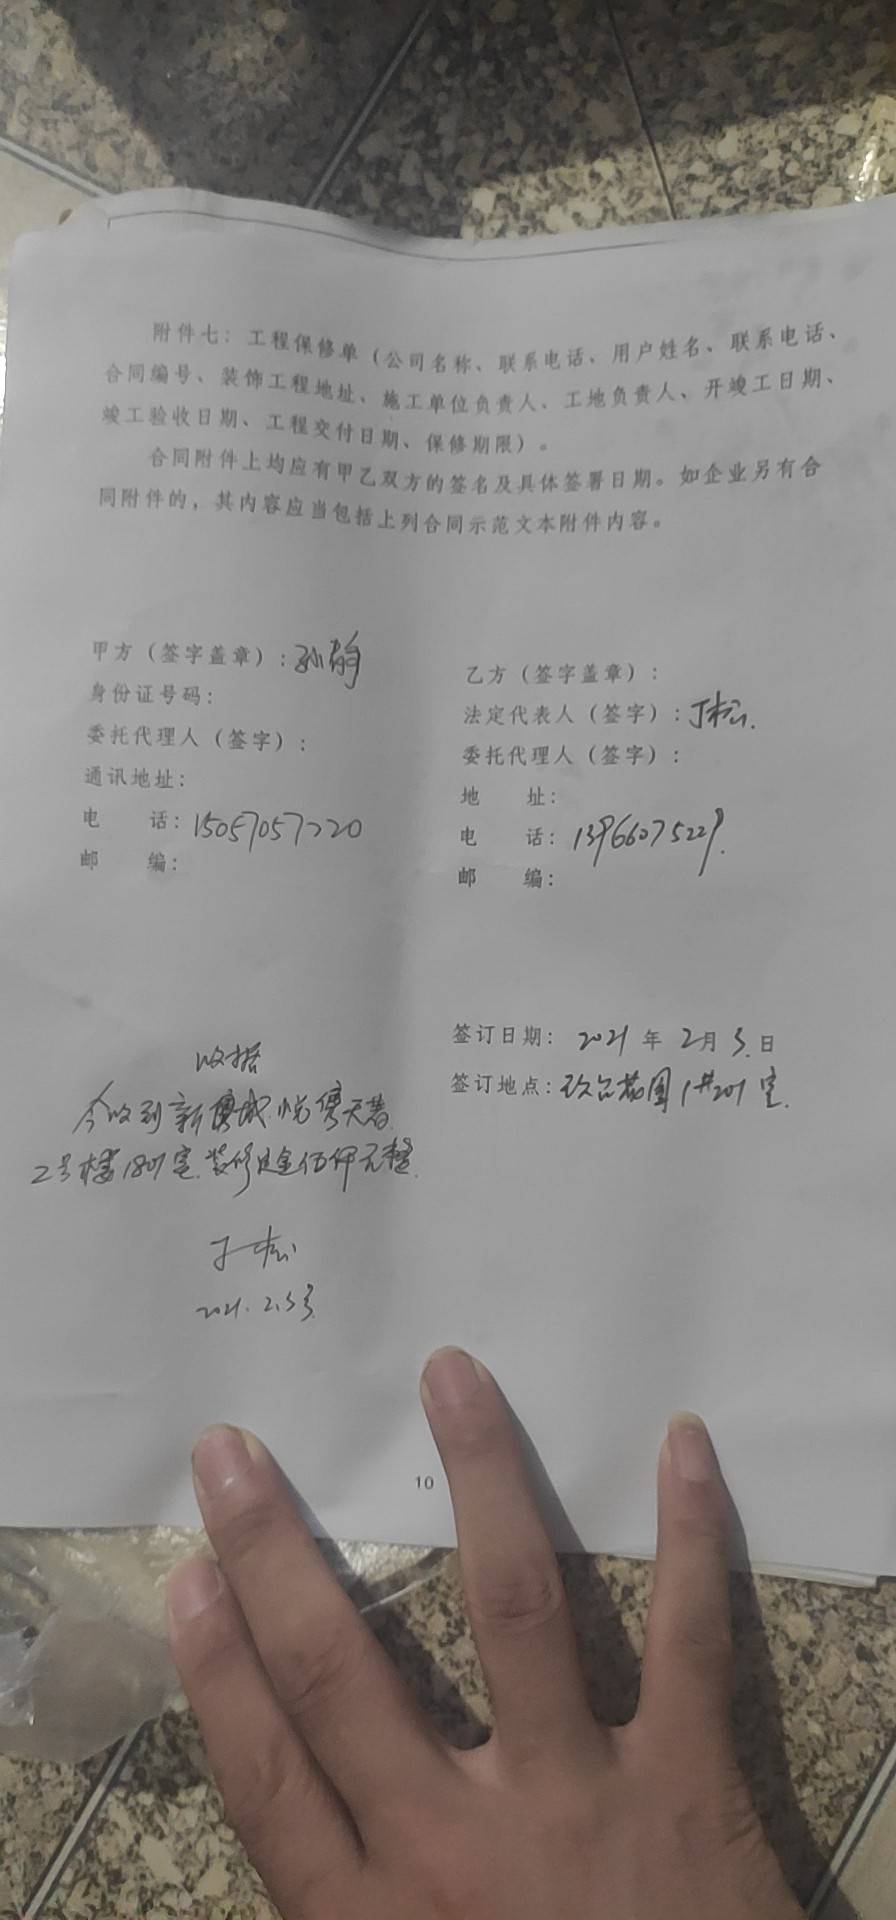 附件七：工程保修单（公司名称、联系电话、用户姓名、联系电话、
合同编号、装饰工程地址、施工单位负责人、工地负责人、开竣工日期、
竣工验收日期、工程交付日期、保修期限）。
合同附件上均应有甲乙双方的签名及具体签署日期。如企业另有合
同附件的，其内容应当包括上列合同示范文本附件内容。
甲方（签字盖章）：孙静
身份证号码：
委托代理人（签字）：
通讯地址：
电 话：15057057220
邮 编：
乙方（签字盖章）：
法定代表人（签字）：丁松
委托代理人（签字）：
地 址：
电 话：13966075229
邮 编：
签订日期：2021年2月5日
签订地点：花园1#201室
收据
今收到新城悦隽天著
2号楼1801室装修定金伍仟元整
丁松
2021.2.5号
10